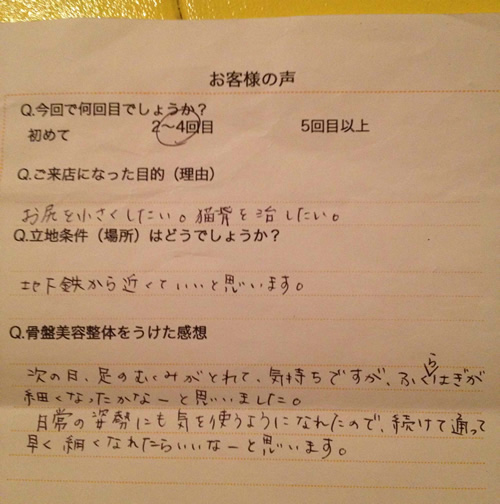 お客様の声
Q.今回で何回目でしょうか?
初めて 2〜4回目 5回目以上
Q.ご来店になった目的(理由)
お尻を小さくしたい。猫背を治したい。
Q.立地条件(場所)はどうでしょうか?
地下鉄から近くていいと思います。
Q.骨盤美容整体をうけた感想
次の日、足のむくみがとれて、気持ちですが、ふくらはぎが
細くなったかなーと思いました。
日常の姿勢にも気を使うようになれたので、続けて通って
早く細くなれたらいいなーと思います。